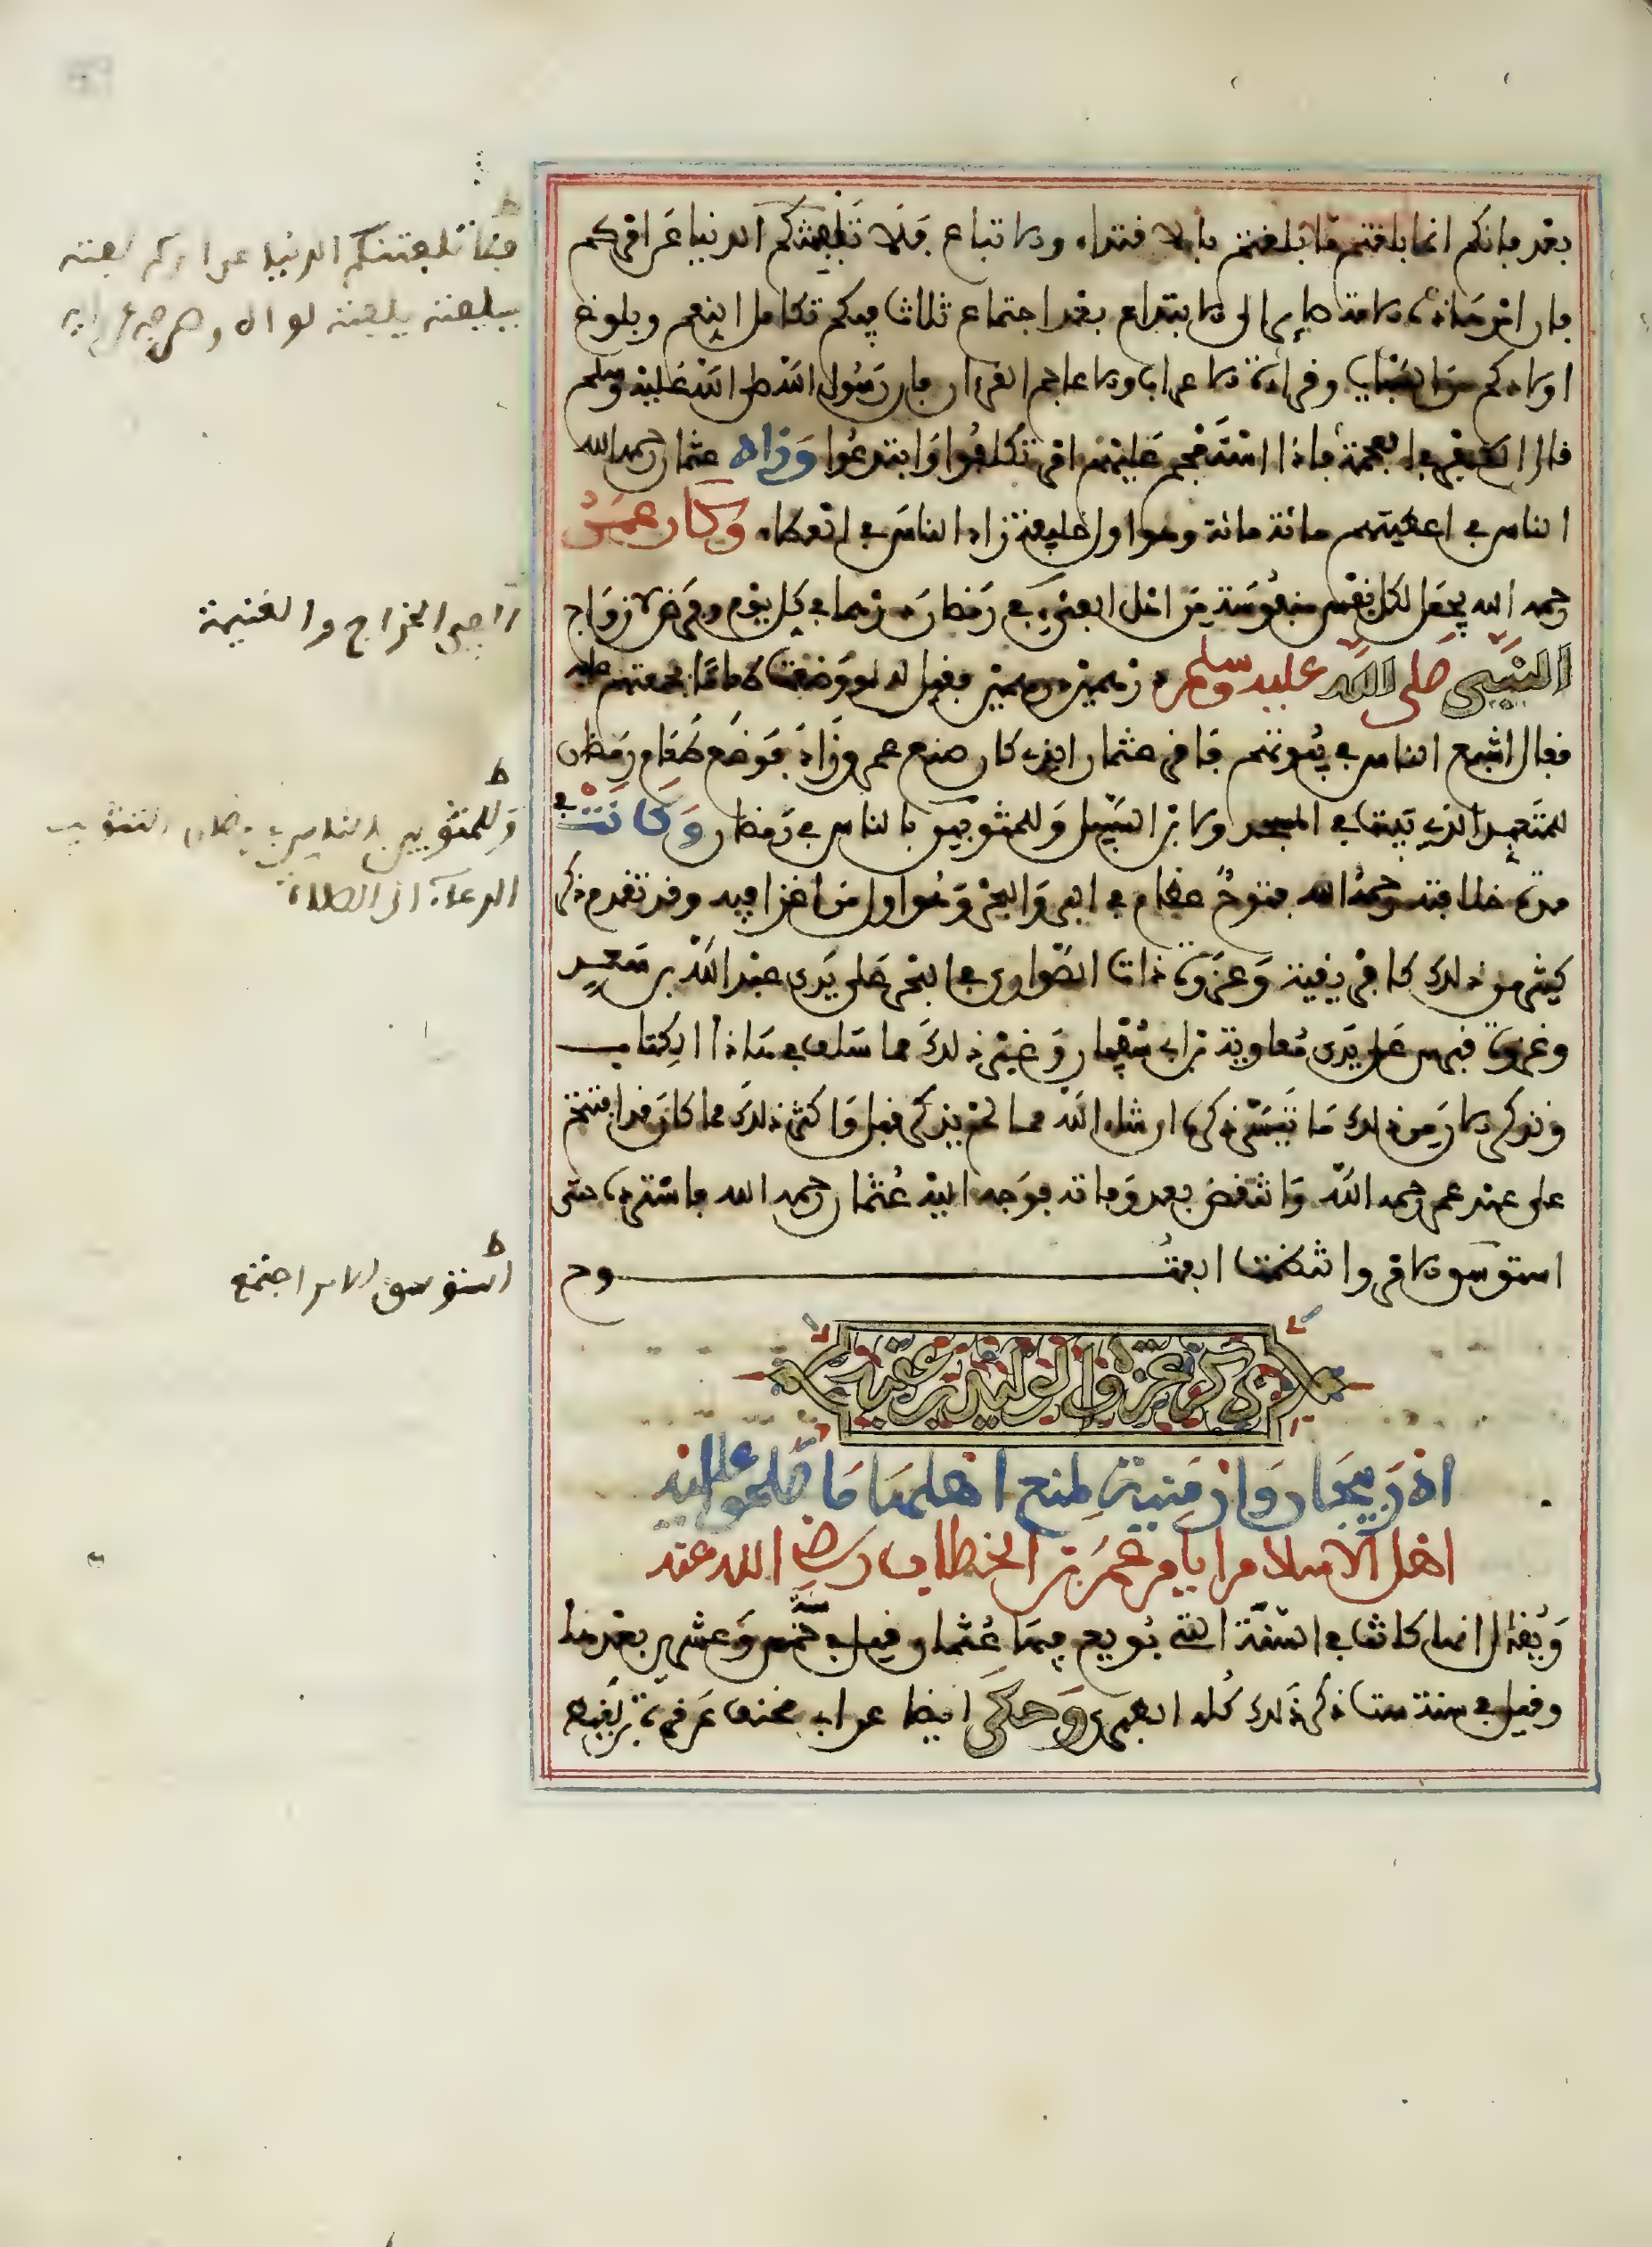 بعد فإنكم إنما بلغتم ما بلغتم بالاقتداء والاتباع فلا تلفتنكم الدنيا عن أمركم
فإن أمر هاذه الأمة صاير إلى الابتداع بعد اجتماع ثلاث فيكم تكامل النعم وبلوغ
أولادكم من السبايا وقراءة الأعراب والأعاجم القرءان فإن رسول الله صلى الله عليه وسلم
قال الكفر في العجمة فإذا استعجم عليهم أمر تكلفوا وابتدعوا وزاد عثمان رحمه الله
الناس في أعطيتهم مائة مائة وهو أول خليفة زاد الناس في العطاء وكان عمر
رحمه الله يجعل لكل نفس منفوسة من أهل الفيء في رمضان درهما في كل يوم وفرض لأزواج
النبي صلى الله عليه وسلم درهمين درهمين فقيل له لو وضعت طعاما فجمعتهم عليه
فقال أشبع الناس في بيوتهم فأقر عثمان الذي كان صنع عمر وزاد فوضع طعام رمضان
للمتعبد الذي يبيت في المسجد وابن السبيل وللمثوبين بالناس في رمضان وكانت في
مدة خلافته رحمه الله فتوح عظام في البر والبحر وهو أول من أغزا فيه وقد تقدم ذكر
كثير من ذلك كإفريقية وغزوة ذات الصواري في البحر على يدي عبد الله بن سعد
وغزوة قبرس على يدي معاوية بن أبي سفيان وغير ذلك مما سلف في هاذا الكتاب
ونذكر الآن من ذلك ما تيسر ذكره إن شاء الله مما لم يذكر قبل وأكثر ذلك مما كان قد افتتح
على عهد عمر رحمه الله وانتقض بعد وفاته فوجه إليه عثمان رحمه الله فاسترده حتى
استوسق الأمر وانتظمت الفتوح
ذكر غزو الوليد بن عقبة
أذربيجان وأرمينية لمنع أهلهما ما صلحوا عليه
أهل الإسلام أيام عمر بن الخطاب رضي الله عنه
ويقال إنها كانت في السنة التي بويع فيها عثمان وقيل في سنة خمس وعشرين بعدها
وقيل في سنة ست ذكر ذلك كله الطبري وحكى أيضا عن أبي مخنف عن فروة بن لقيط
فلا تلفتنكم الدنيا عن أمركم لفته
يلفته لواه وصرفه عن رأيه
الفيء الخراج والغنيمة
ط
وللمثوبين بالناس في رمضان التثويب
الدعاء إلى الصلاة
ط
استوسق الأمر اجتمع